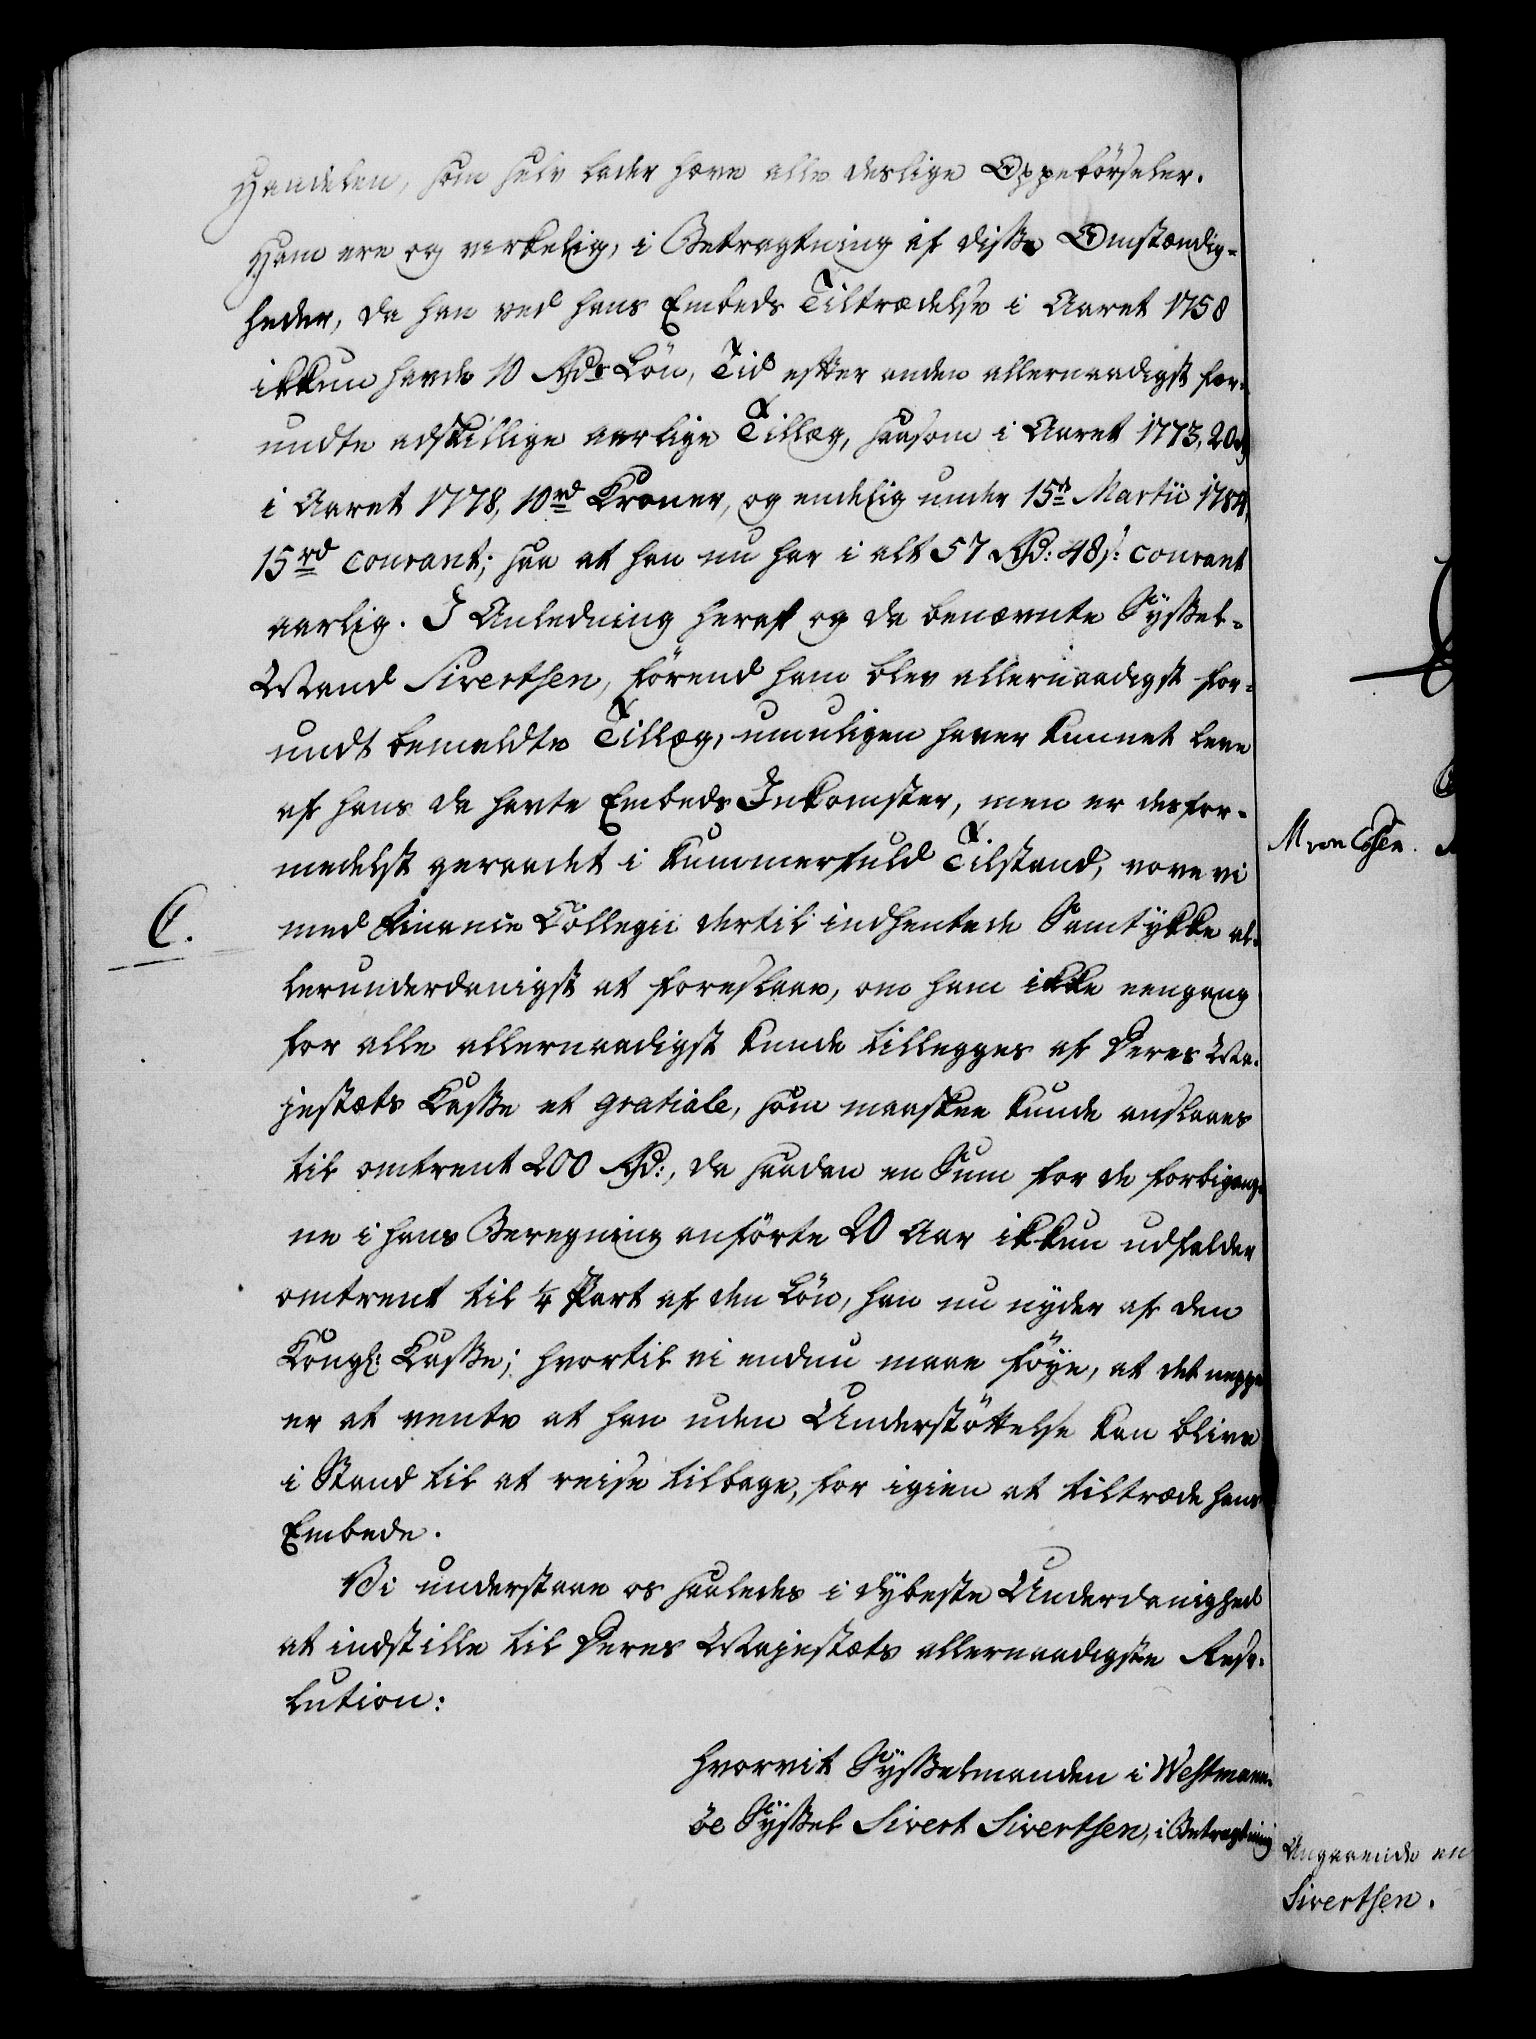 Handelen, som selv lader hæve alle deslige Oppebörseler.
Ham ere og virkelig, i Betragtning af disse Omstændig-
heder, da han ved hans Embeds Tiltrædelse i Aaret 1758
ikkun havde 10 Rdr Lön, Tid efter anden allernaadigst for-
undte adskillige aarlige Tillæg, saasom i Aaret 1773, 20 rd
i Aaret 1778, 10 rd Kroner, og endelig under 15de Martii 1784,
15 rd courant; saa at han nu har i alt 57 Rd: 48 s: courant
aarlig. I Anledning heraf og da benævnte Sÿssel-
Mand Sivertsen, förend ham blev allernaadigst for-
undt bemeldte Tillæg, umuligen haver kunnet leve
af hans da havte Embeds Indkomster, men er desfor-
medelst geraadet i kummerfuld Tilstand, vove vi
C.
med Finance Collegii dertil indhentede Samtÿkke al-
lerunderdanigst at foreslaae, om ham ikke eengang
for alle allernaadigst kunde tillegges af Deres Ma-
jestæts Kasse et gratiale, som maaskee kunde anslaaes
til omtrent 200 Rd:, da saadan en Sum for de forbigang-
ne i hans Beregning anförte 20 Aar ikkun udfalder
omtrent til 1/4 Part af den Lön, han nu nÿder af den
Kongl: Kasse; hvortil vi endnu maae föÿe, at det neppe
er at vente at han uden Understöttelse kan blive
i Stand til at reise tilbage, for igien at tiltræde hans
Embede.
Vi understaae os saaledes i dÿbeste Underdanighed
at indstille til Deres Majestæts allernaadigste Reso-
lution:
hvorvit Sÿsselmanden i Westmann-
öe Sÿssel Sivert Sivertsen, i Betragtning
M von Essen.
Angaaende en
Sivertsen.